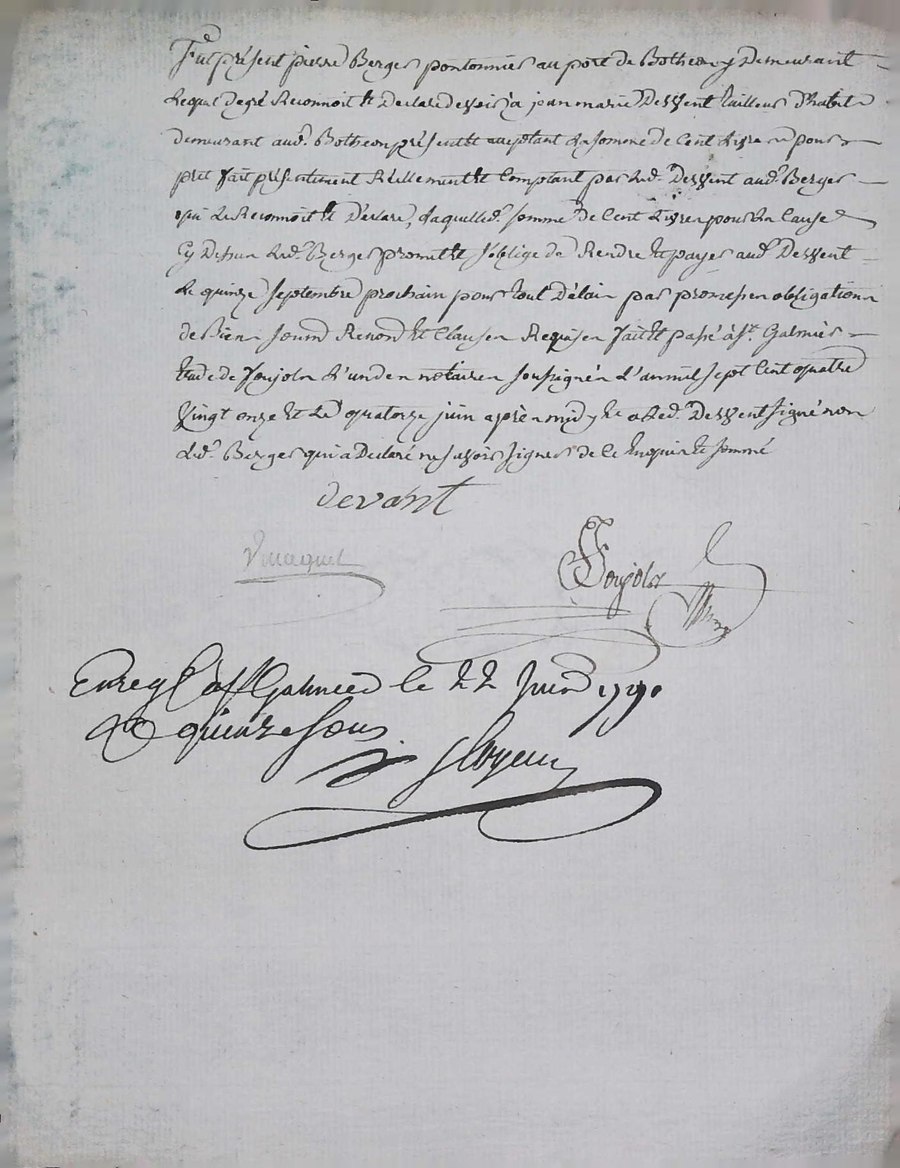 Fut présent pierre Berger pontonnier au port de Botheon y Demeurant
Lequel de gré Reconnoit et Declare devoir à jean marie Dessent tailleur D'habit
demeurant aud. Botheon présent et acceptant la somme de Cent Livres pour
pret fait présentement Réellement et Comptant par led. Dessent aud. Berger
qui Le Reconnoit et Déclare, Laquelle d. somme de Cent Livres pour La Cause
Cy Dessus led. Berger promet et s'oblige de Rendre et payer aud. Dessent
Le quinze septembre prochain pour tout Délais par promesses obligations
de Biens soumis Renonc. et Clauses Requises fait et passé à St. Galmier
Etude de Joujols L'un des notaires soussignés L'an mil sept Cent quatre
Vingt onze et Le quatorze juin après midy et a led. Dessent signé non
Led. Berger qui a Declaré ne savoir signer de ce Enquis et sommé
devant
Joujols
Enreg. à St Galmier le 22 Juin 179
quinze sous